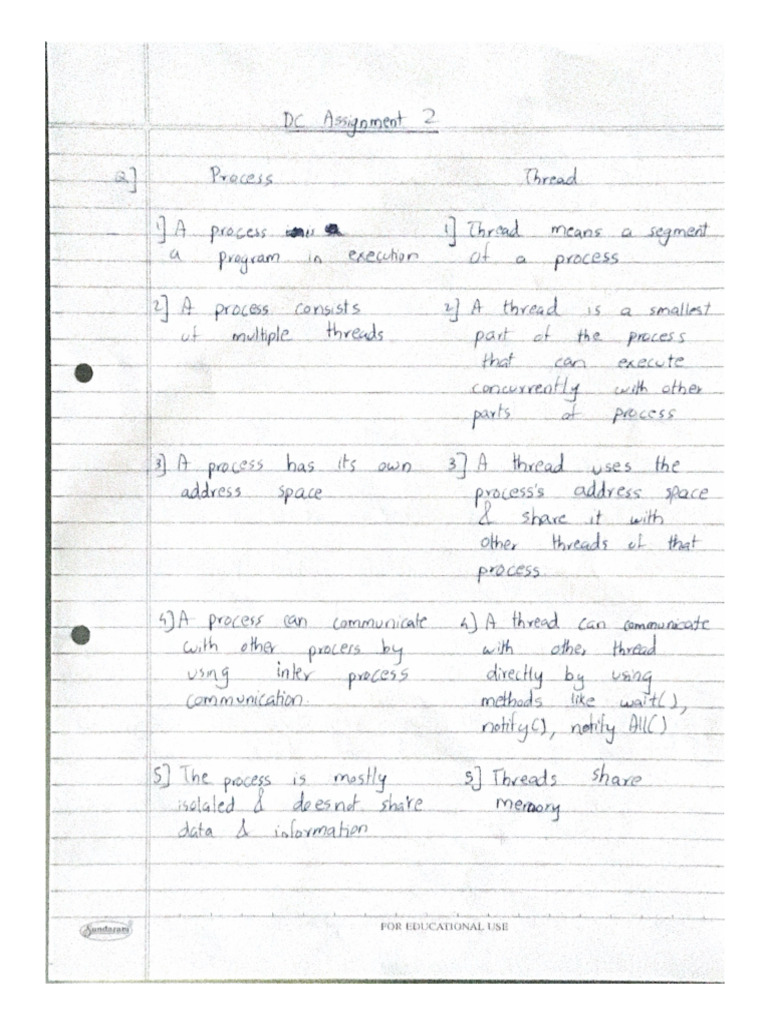 DC Assignment 2
Q] Process Thread
1] A process is a
a program in execution
1] Thread means a segment
of a process
2] A process consists
of multiple threads
2] A thread is a smallest
part of the process
that can execute
concurrently with other
parts of process
3] A process has its own
address space
3] A thread uses the
process's address space
& share it with
other threads of that
process
4] A process can communicate
with other process by
using inter process
communication.
4] A thread can communicate
with other thread
directly by using
methods like wait(),
notify(), notify All()
5] The process is mostly
isolated & does not share
data & information
5] Threads share
memory
Sundaram
FOR EDUCATIONAL USE